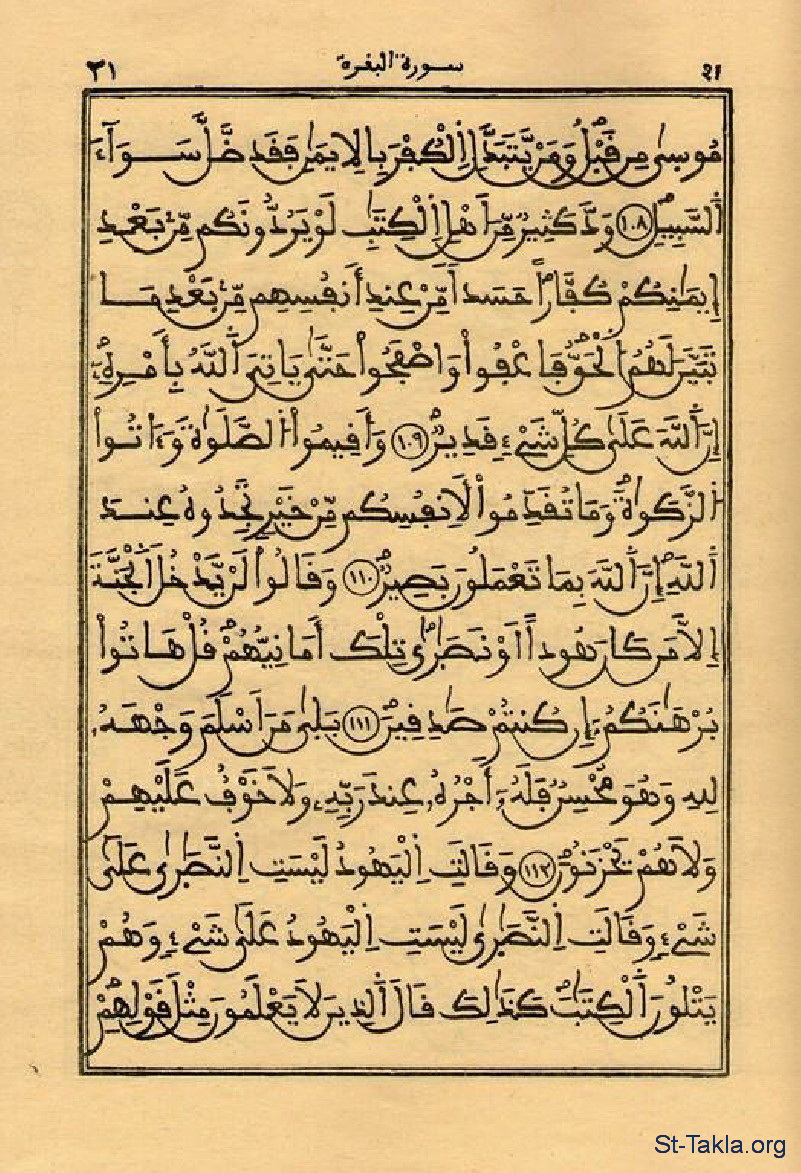 ٢١ سورة البقرة ٣١
مُوسِىٰ مِن قَبْلُ وَمَنْ يَّتَبَدَّلِ اِلْكُفْرَ بِالِايمَٰنِ فَقَد ضَّلَّ سَوَآءَ
اَلسَّبِيلِ ١٠٨ وَدَّ كَثِيرٌ مِّنَ اَهْلِ اِلْكِتَٰبِ لَوْ يَرُدُّونَكُم مِّنۢ بَعْدِ
إِيمَٰنِكُمْ كُفَّاراً حَسَداً مِّنْ عِندِ أَنفُسِهِم مِّنۢ بَعْدِ مَا
تَبَيَّنَ لَهُمُ اُلْحَقُّ فَاعْفُواْ وَاصْفَحُواْ حَتَّىٰ يَاتِيَ اَللَّهُ بِأَمْرِهِۦٓ
إِنَّ اَللَّهَ عَلَىٰ كُلِّ شَےْءٖ قَدِيرٌ ١٠٩ وَأَقِيمُواْ اُلصَّلَوٰةَ وَءَاتُواْ
اُلزَّكَوٰةَ وَمَا تُقَدِّمُواْ لَأَنفُسِكُم مِّنْ خَيْرٖ تَجِدُوهُ عِندَ
اَللَّهِ إِنَّ اَللَّهَ بِمَا تَعْمَلُونَ بَصِيرٌ ١١٠ وَقَالُواْ لَنْ يَّدْخُلَ اَلْجَنَّةَ
إِلاَّ مَن كَانَ هُوداً اَوْ نَصَٰرَىٰ تِلْكَ أَمَانِيُّهُمْ قُلْ هَاتُواْ
بُرْهَٰنَكُمُۥٓ إِن كُنتُمْ صَٰدِقِينَ ١١١ بَلَىٰ مَنَ اَسْلَمَ وَجْهَهُۥ
لِلهِ وَهُوَ مُحْسِنٌ فَلَهُۥٓ أَجْرُهُۥ عِندَ رَبِّهِۦ وَلَا خَوْفٌ عَلَيْهِمْ
وَلَا هُمْ يَحْزَنُونَ ١١٢ وَقَالَتِ اِلْيَهُودُ لَيْسَتِ اِلنَّصَٰرَىٰ عَلَىٰ
شَےْءٖ وَقَالَتِ اِلنَّصَٰرَىٰ لَيْسَتِ اِلْيَهُودُ عَلَىٰ شَےْءٖ وَهُمْ
يَتْلُونَ اَلْكِتَٰبَ كَذَٰلِكَ قَالَ اَلذِينَ لَا يَعْلَمُونَ مِثْلَ قَوْلِهِمْ
St-Takla.org